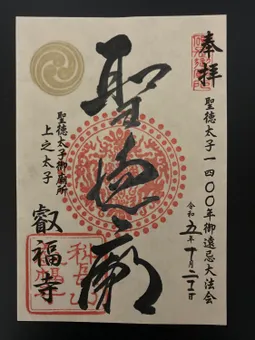 奉拝
聖徳太子一四〇〇年御遠忌大法会
令和五年
聖徳廟
聖徳太子御廟所
上之太子
叡福寺